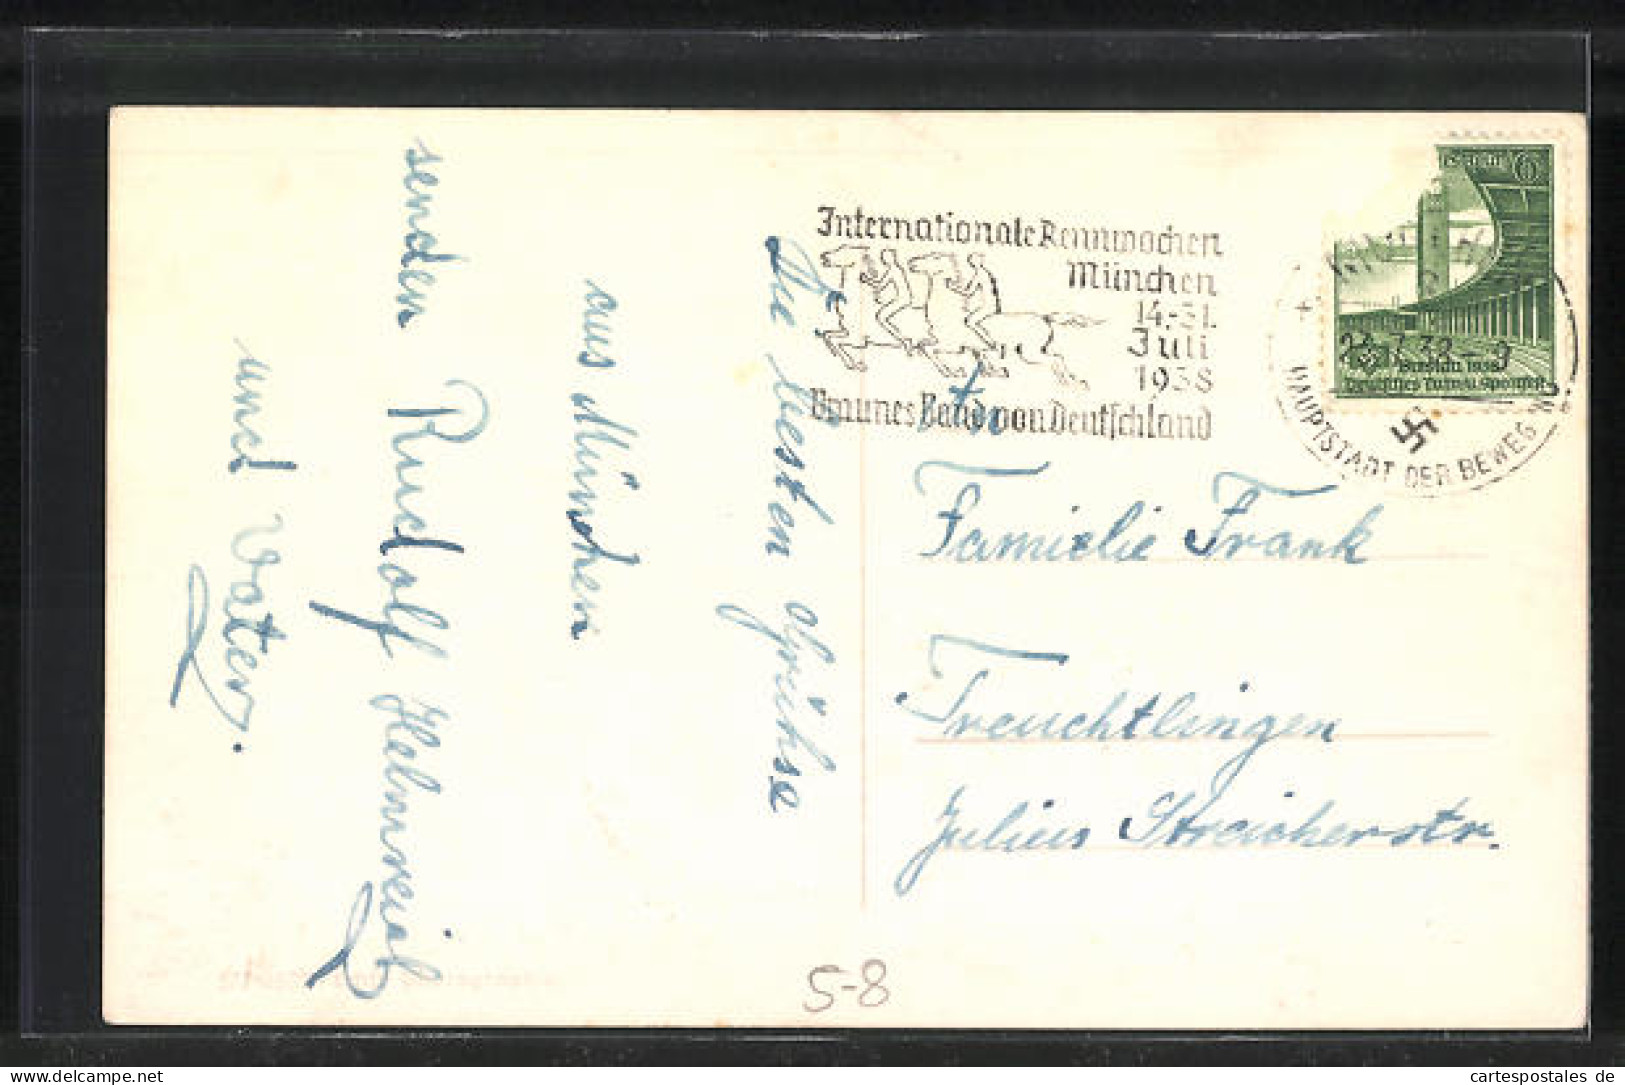 Die besten Grühse
aus München
senden Rudolf Helmreich
und Vater.
Internationale Rennwochen
München
14.-31.
Juli
1938
Braunes Band von Deutschland
HAUPTSTADT DER BEWEGUNG
6
Breslau 1938
Deutsches Turn-u. Sportfest
An
Familie Frank
Treuchtlingen
Julius Streicherstr.
5-8
delcampe.net
cartespostales de